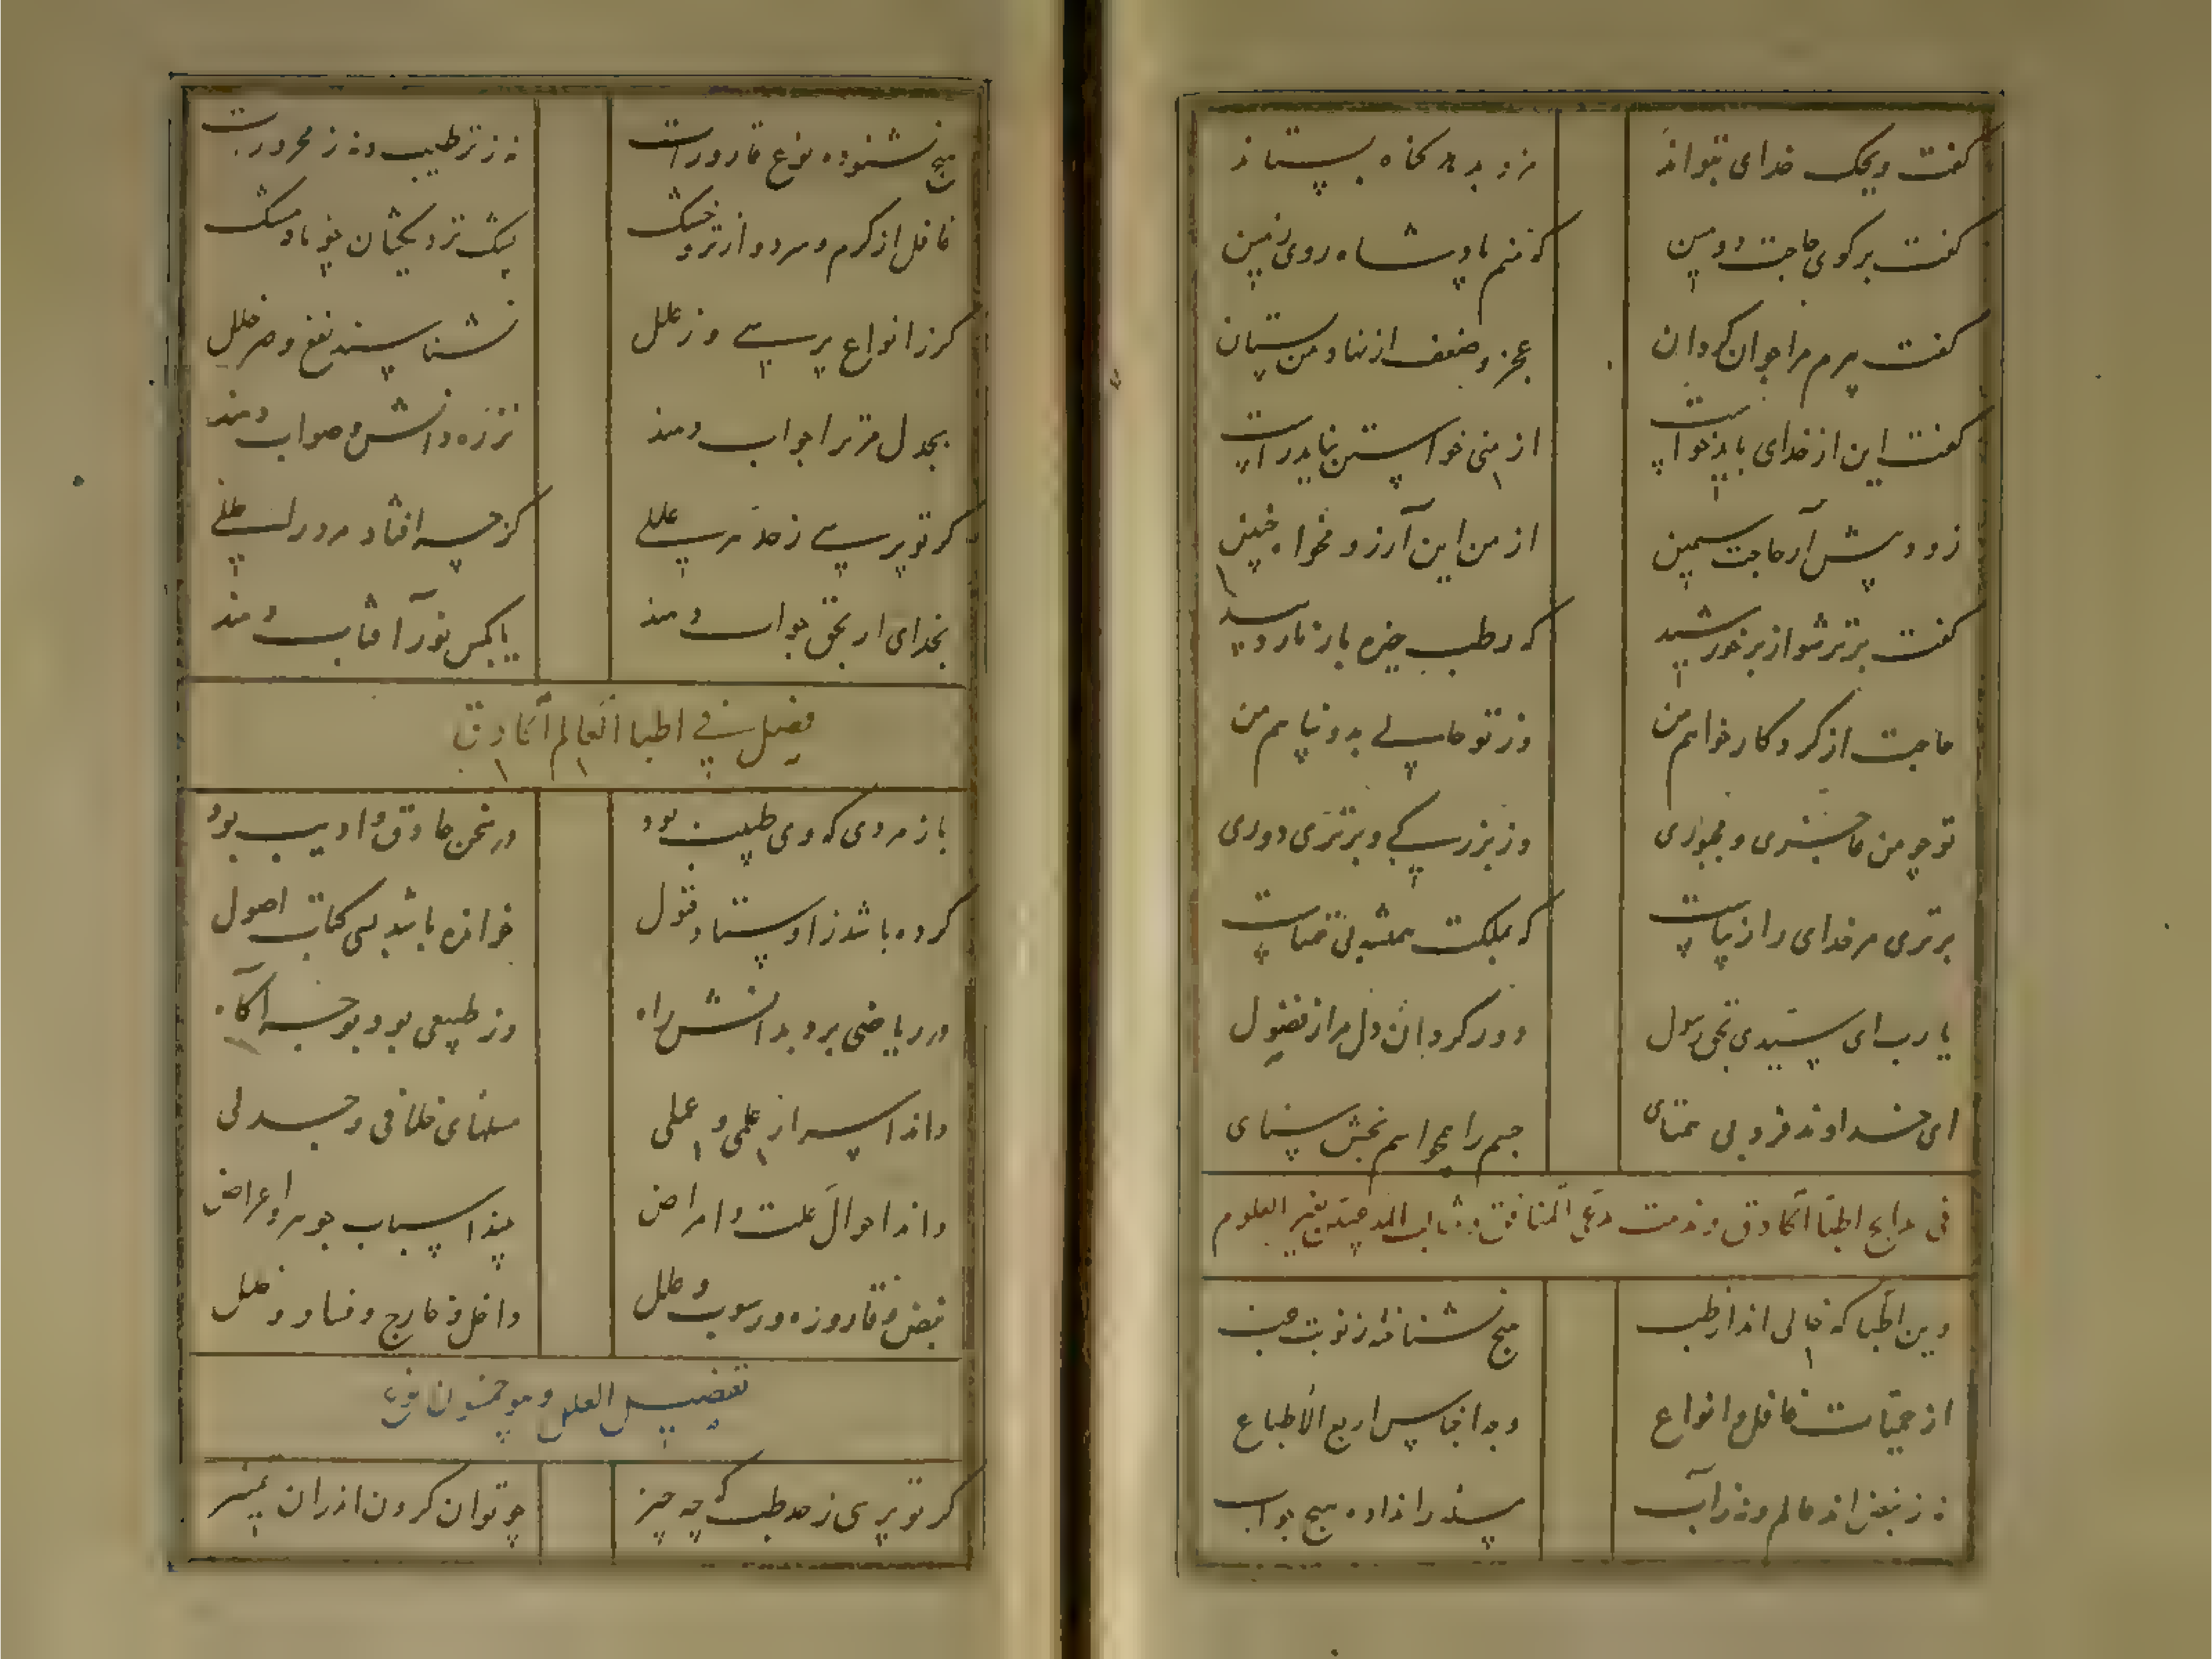 گفت ویحک خدای بتواند مزد بدهد گناه بستاند
گفت برگوی حاجت دومین که منم پادشاه روی زمین
گفت پیرم مرا جوان گردان عجز و ضعف از نهاد من بستان
گفت این از خدای باید خواست از منی خواستن نیاید راست
زود پیش آر حاجت سیمین از من این آرزو مخواه چنین
گفت برتر شو از بر خورشید که رطب خیره بار نارد بید
حاجت از کردگار خواهم من وز تو حالی بدو پناهم من
تو چو من عاجزی و مجبوری وز بزرگی و برتری دوری
برتری مر خدای را زیباست که بملکت همیشه بی همتاست
یا رب ای سیدی بحق رسول دور گردان دل مرا ز فضول
ای خداوند فرد بی همتای جسم را همچو اسم بخش سنای
وین اطبا که خالی اند از طب هیچ نشناخته ز نوبت حب
از حمیات غافل و انواع وجد اجناس اربع الاطباع
نه ز نبض اند عالم و نه ز آب پسند را نداده هیچ جواب
هیچ نشنوده نوع قارورات نه ز ترطیب و نه ز محرورات
غافل از گرم و سرد و از تر و خشک پشک نزدیکشان چو باد مشک
گر ز انواع پرسی و ز علل نشناسند نفع و ضر خلل
بجدل مر ترا جواب دهند نز ره دانش و صواب دهند
گر تو پرسی ز حد هر عللی کز چه افتاد مرد را سللی
بخدای ار بحق جواب دهند یا بکس نور آفتاب دهند
فصل فی اطبا العالم الحاذق
باز مردی که وی طبیب بود در سخن حاذق و ادیب بود
کرده باشد ز اوستاد قبول خوانده باشد بسی کتاب اصول
در ریاضی برد بدانش راه وز طبیعی بود بوجه آگاه
داند اسرار علمی و عملی سخنهای خلافی و جدلی
داند احوال علت و امراض بیند اسباب جوهر و اعراض
نبض و قاروره و رسوب و علل داخل و خارج و فساد و خلل
تفضیل العلل و هو خمسون نوع
گر تو پرسی ز حد طب که چه چیز چو توان کردن اندران تمییز